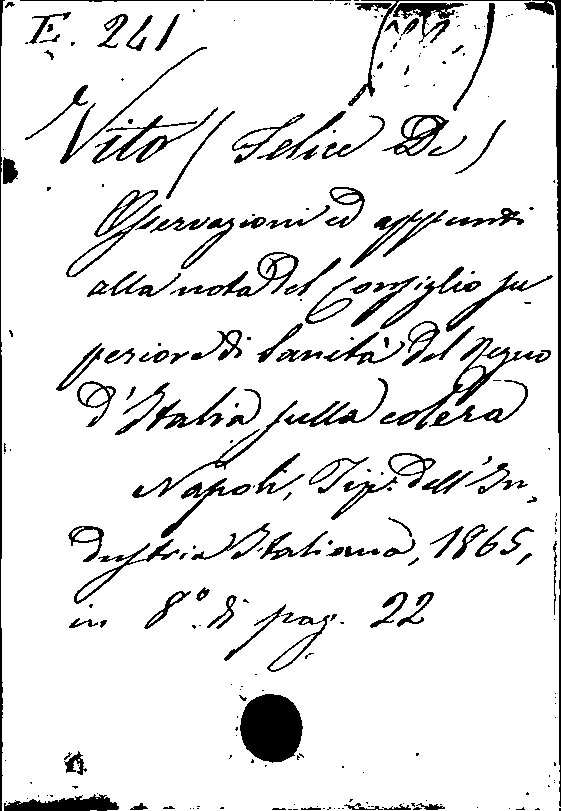 E. 241
Vito (Felice De)
Osservazioni ed appunti
alla nota del Consiglio su
periore di Sanità del Regno
d'Italia sulla colèra
Napoli, Tip. dell'In-
dustria Italiana, 1865,
in 8.° di pag. 22